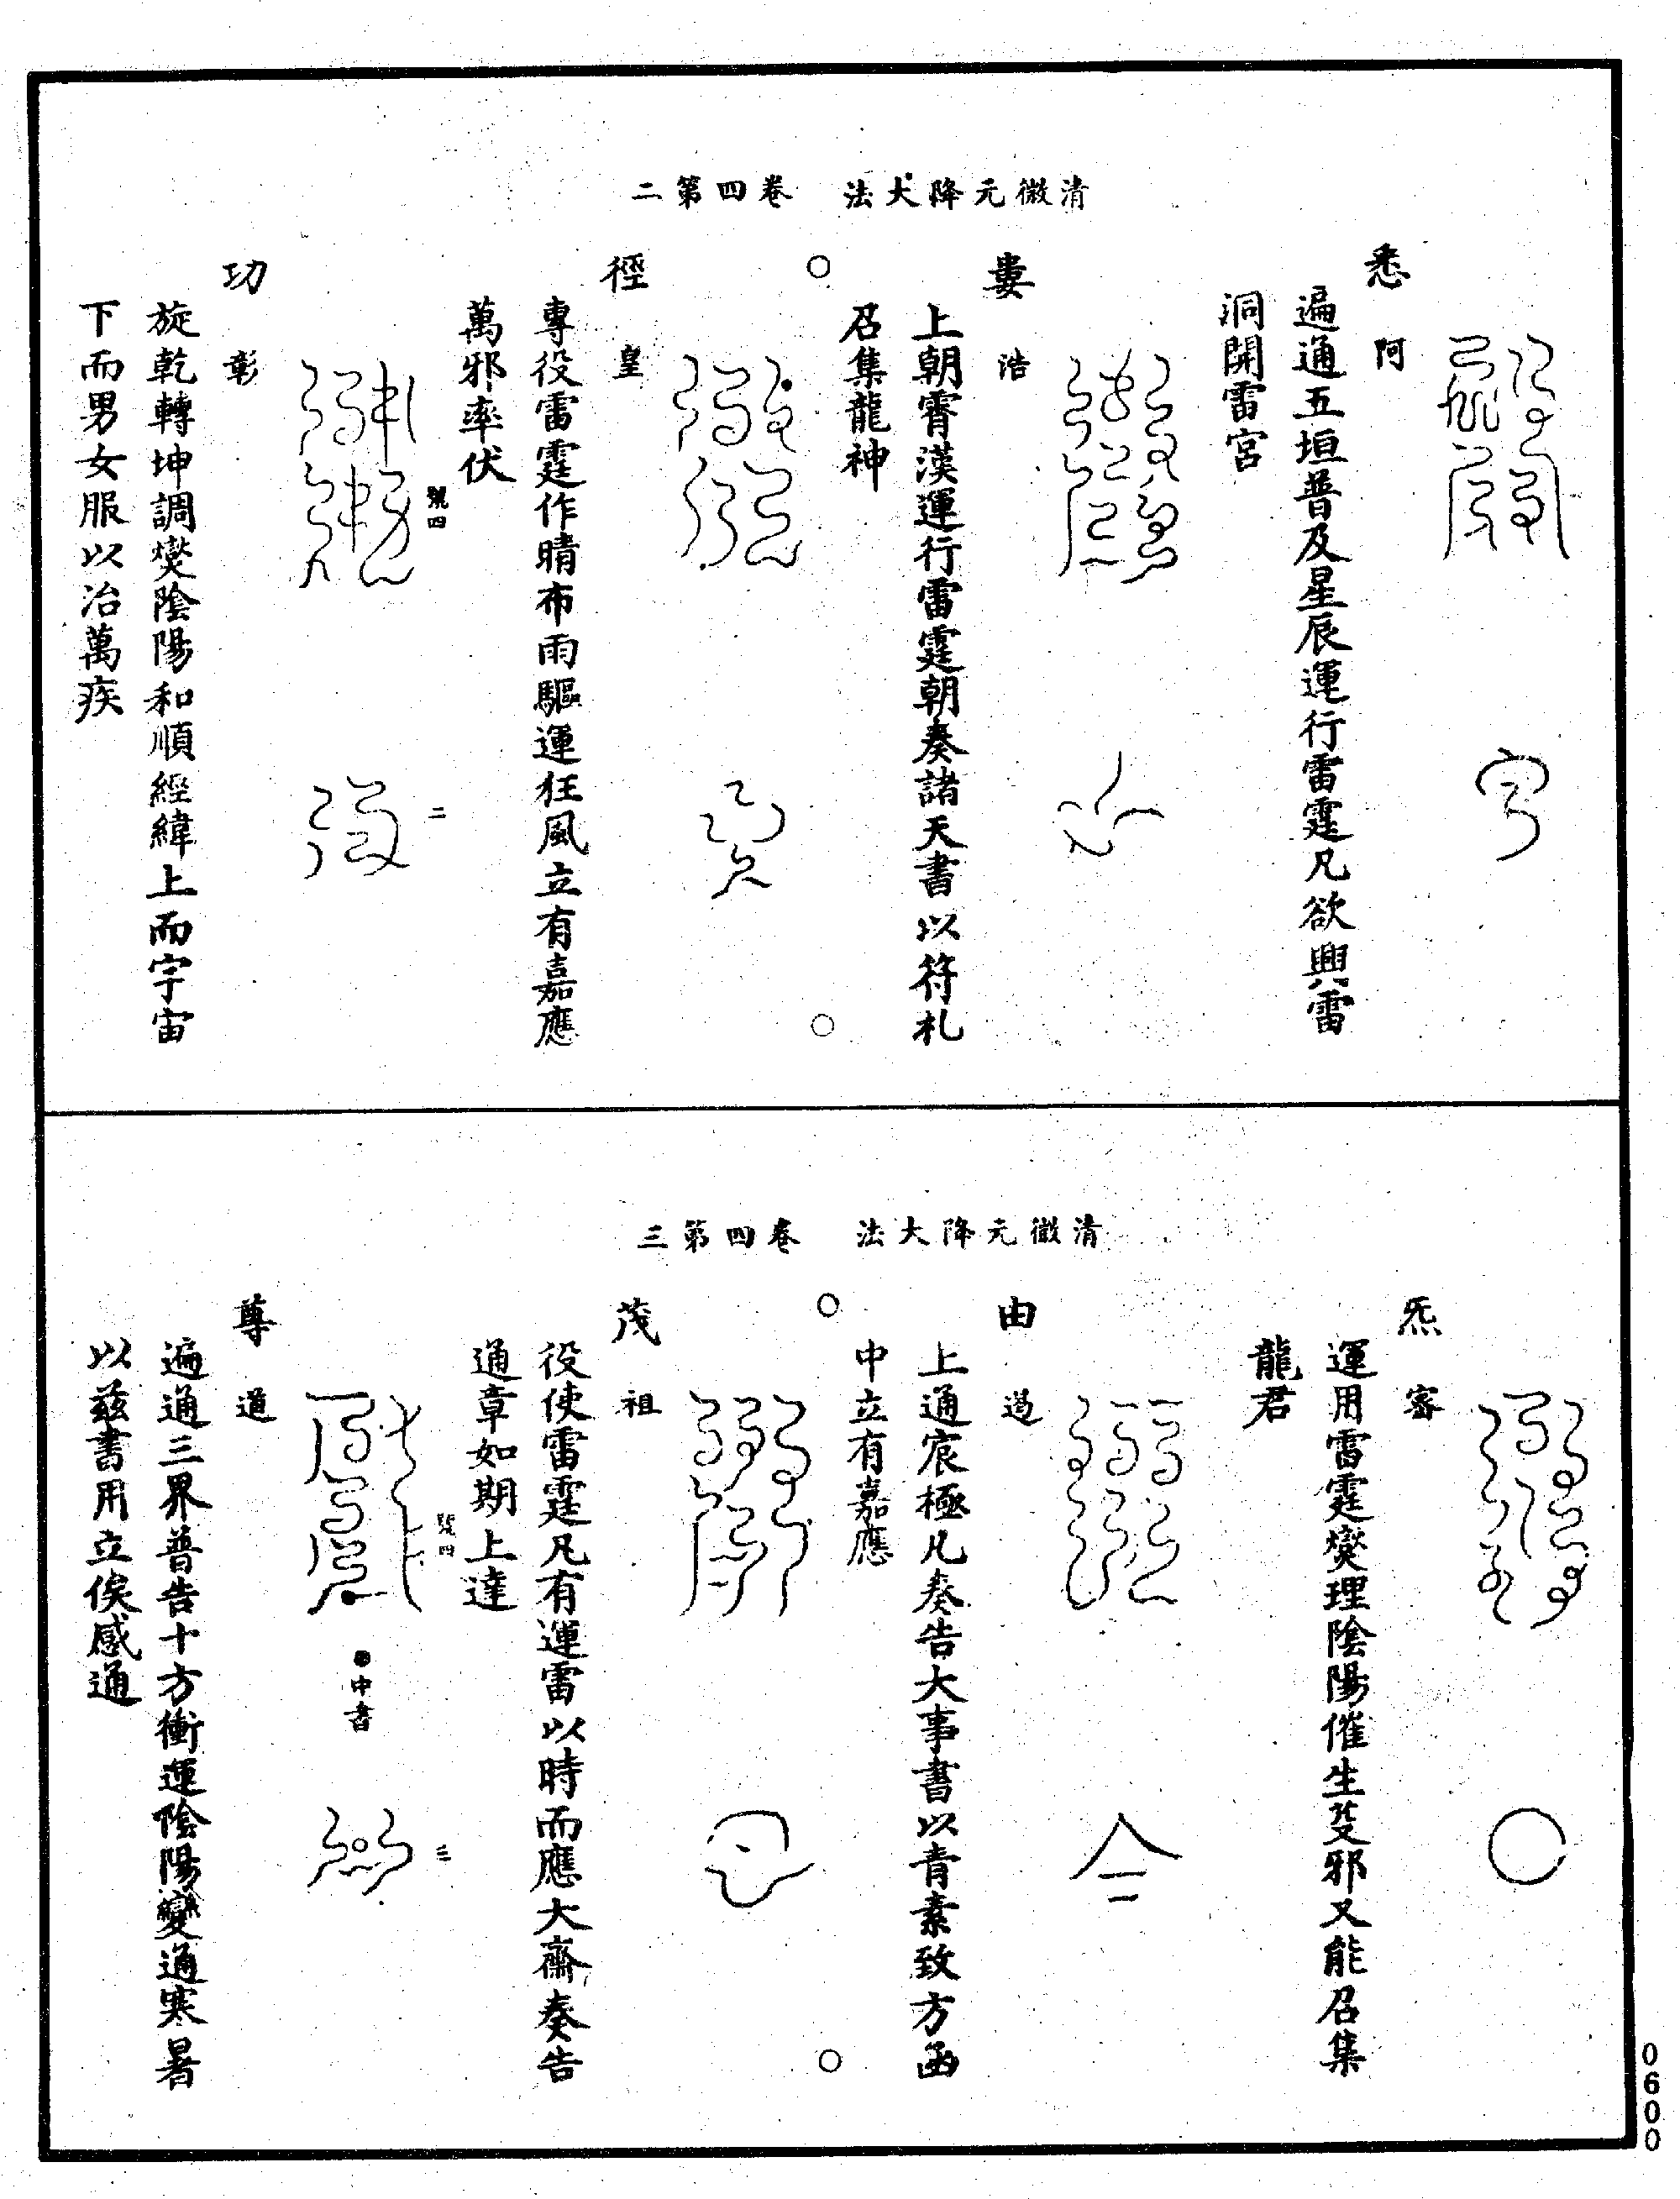 清微元降大法　卷四第二
悉阿
遍通五垣普及星辰運行雷霆凡欲興雷
洞開雷宮
婁浩
上朝霄漢運行雷霆朝奏諸天書以符札
召集龍神
徑皇
專役雷霆作晴布雨驅運狂風立有嘉應
萬邪率伏
號四
二
功彰
旋乾轉坤調燮陰陽和順經緯上而宇宙
下而男女服以治萬疾
清微元降大法　卷四第三
炁審
運用雷霆燮理陰陽催生芟邪又能召集
龍君
由
上通宸極凡奏告大事書以青素致方函
中立有嘉應
茂祖
役使雷霆凡有運雷以時而應大齋奏告
通章如期上達
號四
三
中書
尊道
遍通三界普告十方衝運陰陽變通寒暑
以茲書用立俟感通
0600